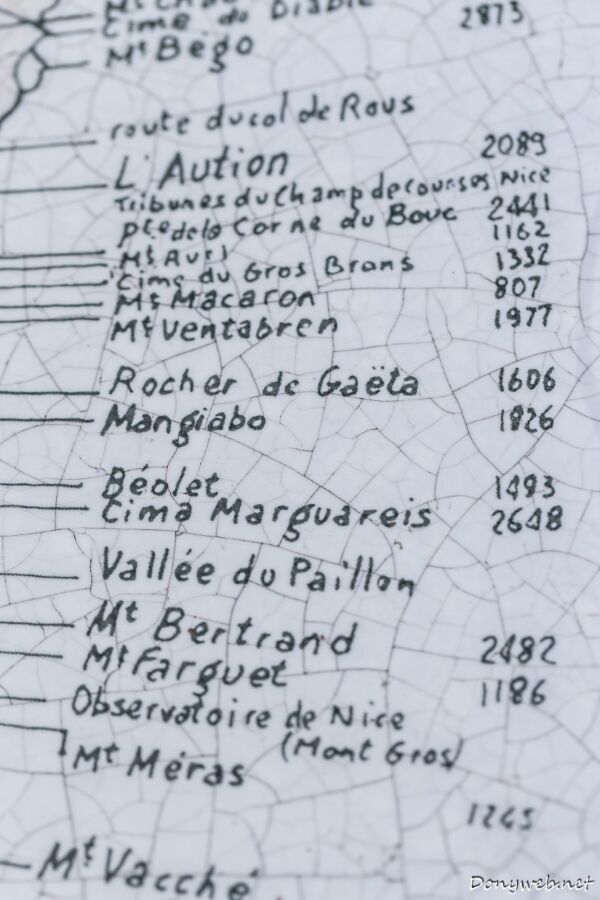 Cime du Diable
Mt Bégo 2873
route du col de Raus
L'Aution 2089
Tribunes du Champ de courses Nice
Pte de la Corne du Bouc 2441
Mt 1162
Cime du Gros Brans 1332
Mt Macaron 807
Mt Ventabren 1977
Rocher de Gaëta 1606
Mangiabo 1826
Béolet 1493
Cima Marguareis 2648
Vallée du Paillon
Mt Bertrand 2482
Mt Farguet 1186
Observatoire de Nice
(Mont Gros)
Mt Méras 1245
Mt Vacché
Donyweb.net